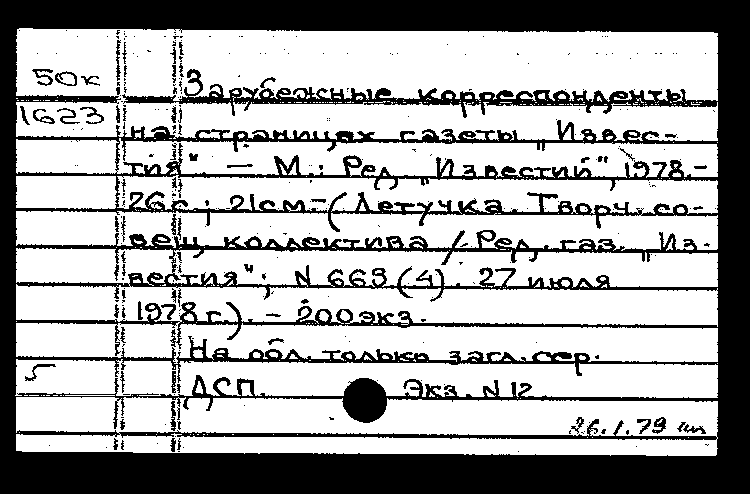 50к Зарубежные корреспонденты
1623
на страницах газеты „Извес-
тия". — М.: Ред. „Известий", 1978.-
26с.; 21см.-(Летучка. Творч. со-
вещ. коллектива /Ред. газ. „Из-
вестия"; N 669(4). 27 июля
1978г.). - 200экз.
На обл. только загл. сер.
5 ДСП. Экз. N 12
26.1.79